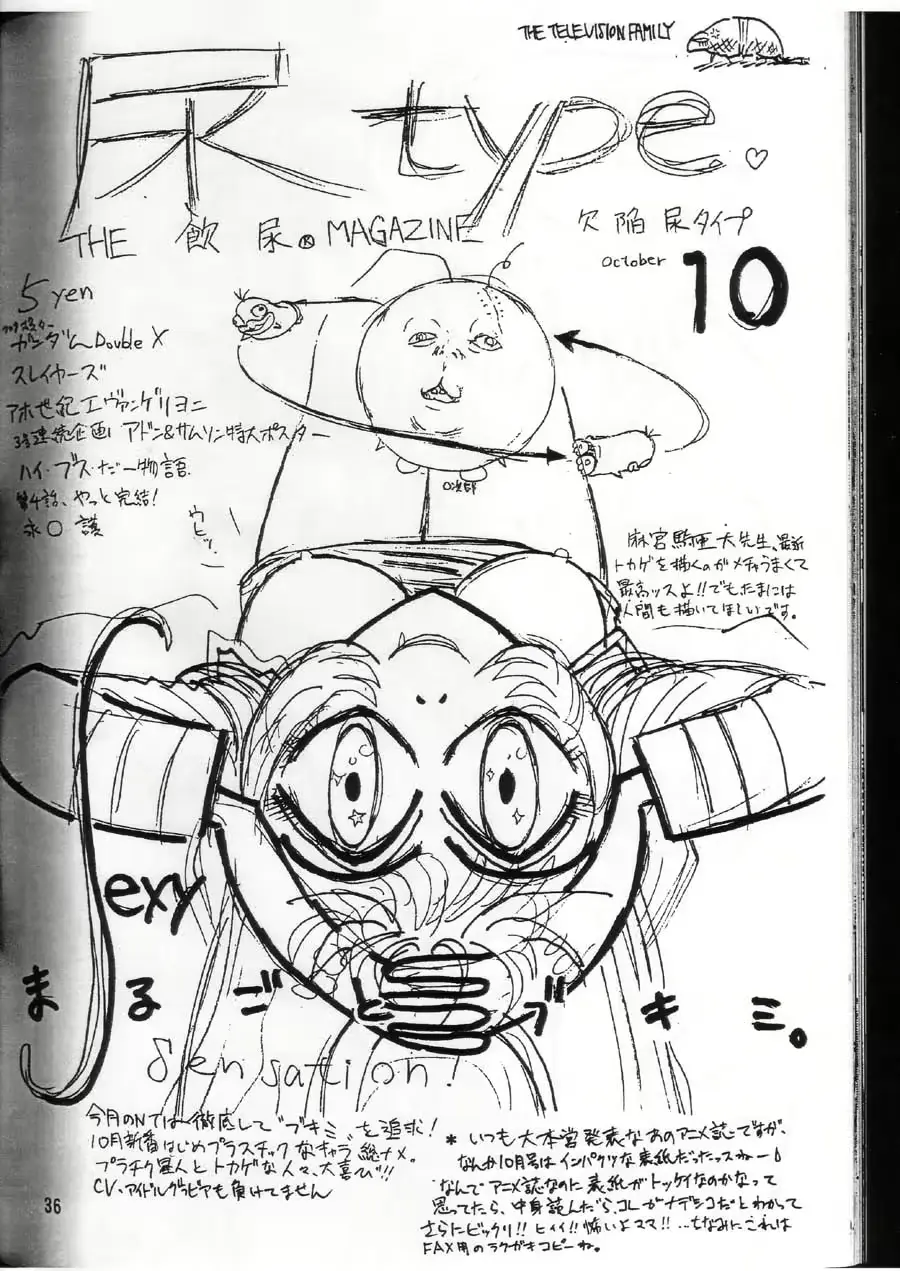 THE TELEVISION FAMILY
尿 type.♡
THE 飲尿® MAGAZINE
欠陥尿タイプ
October 10
5 yen
ガンダムDouble X
スレイヤーズ
アホ世紀エヴァンゲリヨニ
3号連続企画! アドン&サムソン特大ポスター
ハイ・ブス・だー物語
第4話、やっと完結!
永〇 護
ウヒッ
麻宮騎亜大先生、最近
トカゲを描くのがメチャうまくて
最高ッスよ!!でもたまには
人間も描いてほしいです。
Sexy
まるごとブキミ。
Sensation!
今月のNTは徹底して“ブキミ”を追求!
10月新番はじめプラスチックなキャラ総ナメ。
プラチク星人とトカゲな人々、大喜び!!
CV、アイドルグラビアも負けてません
* いつも大本営発表なあのアニメ誌ですが、
なんか10月号はインパクツな表紙だったッスねー♪
なんでアニメ誌なのに表紙がトッケイなのかなって
思ってたら、中身読んだら、コレがナデシコだとわかって
さらにビックリ!! ヒィイ!! 怖いよママ!! …ちなみにこれは
FAX用のラクガキコピーね。
36